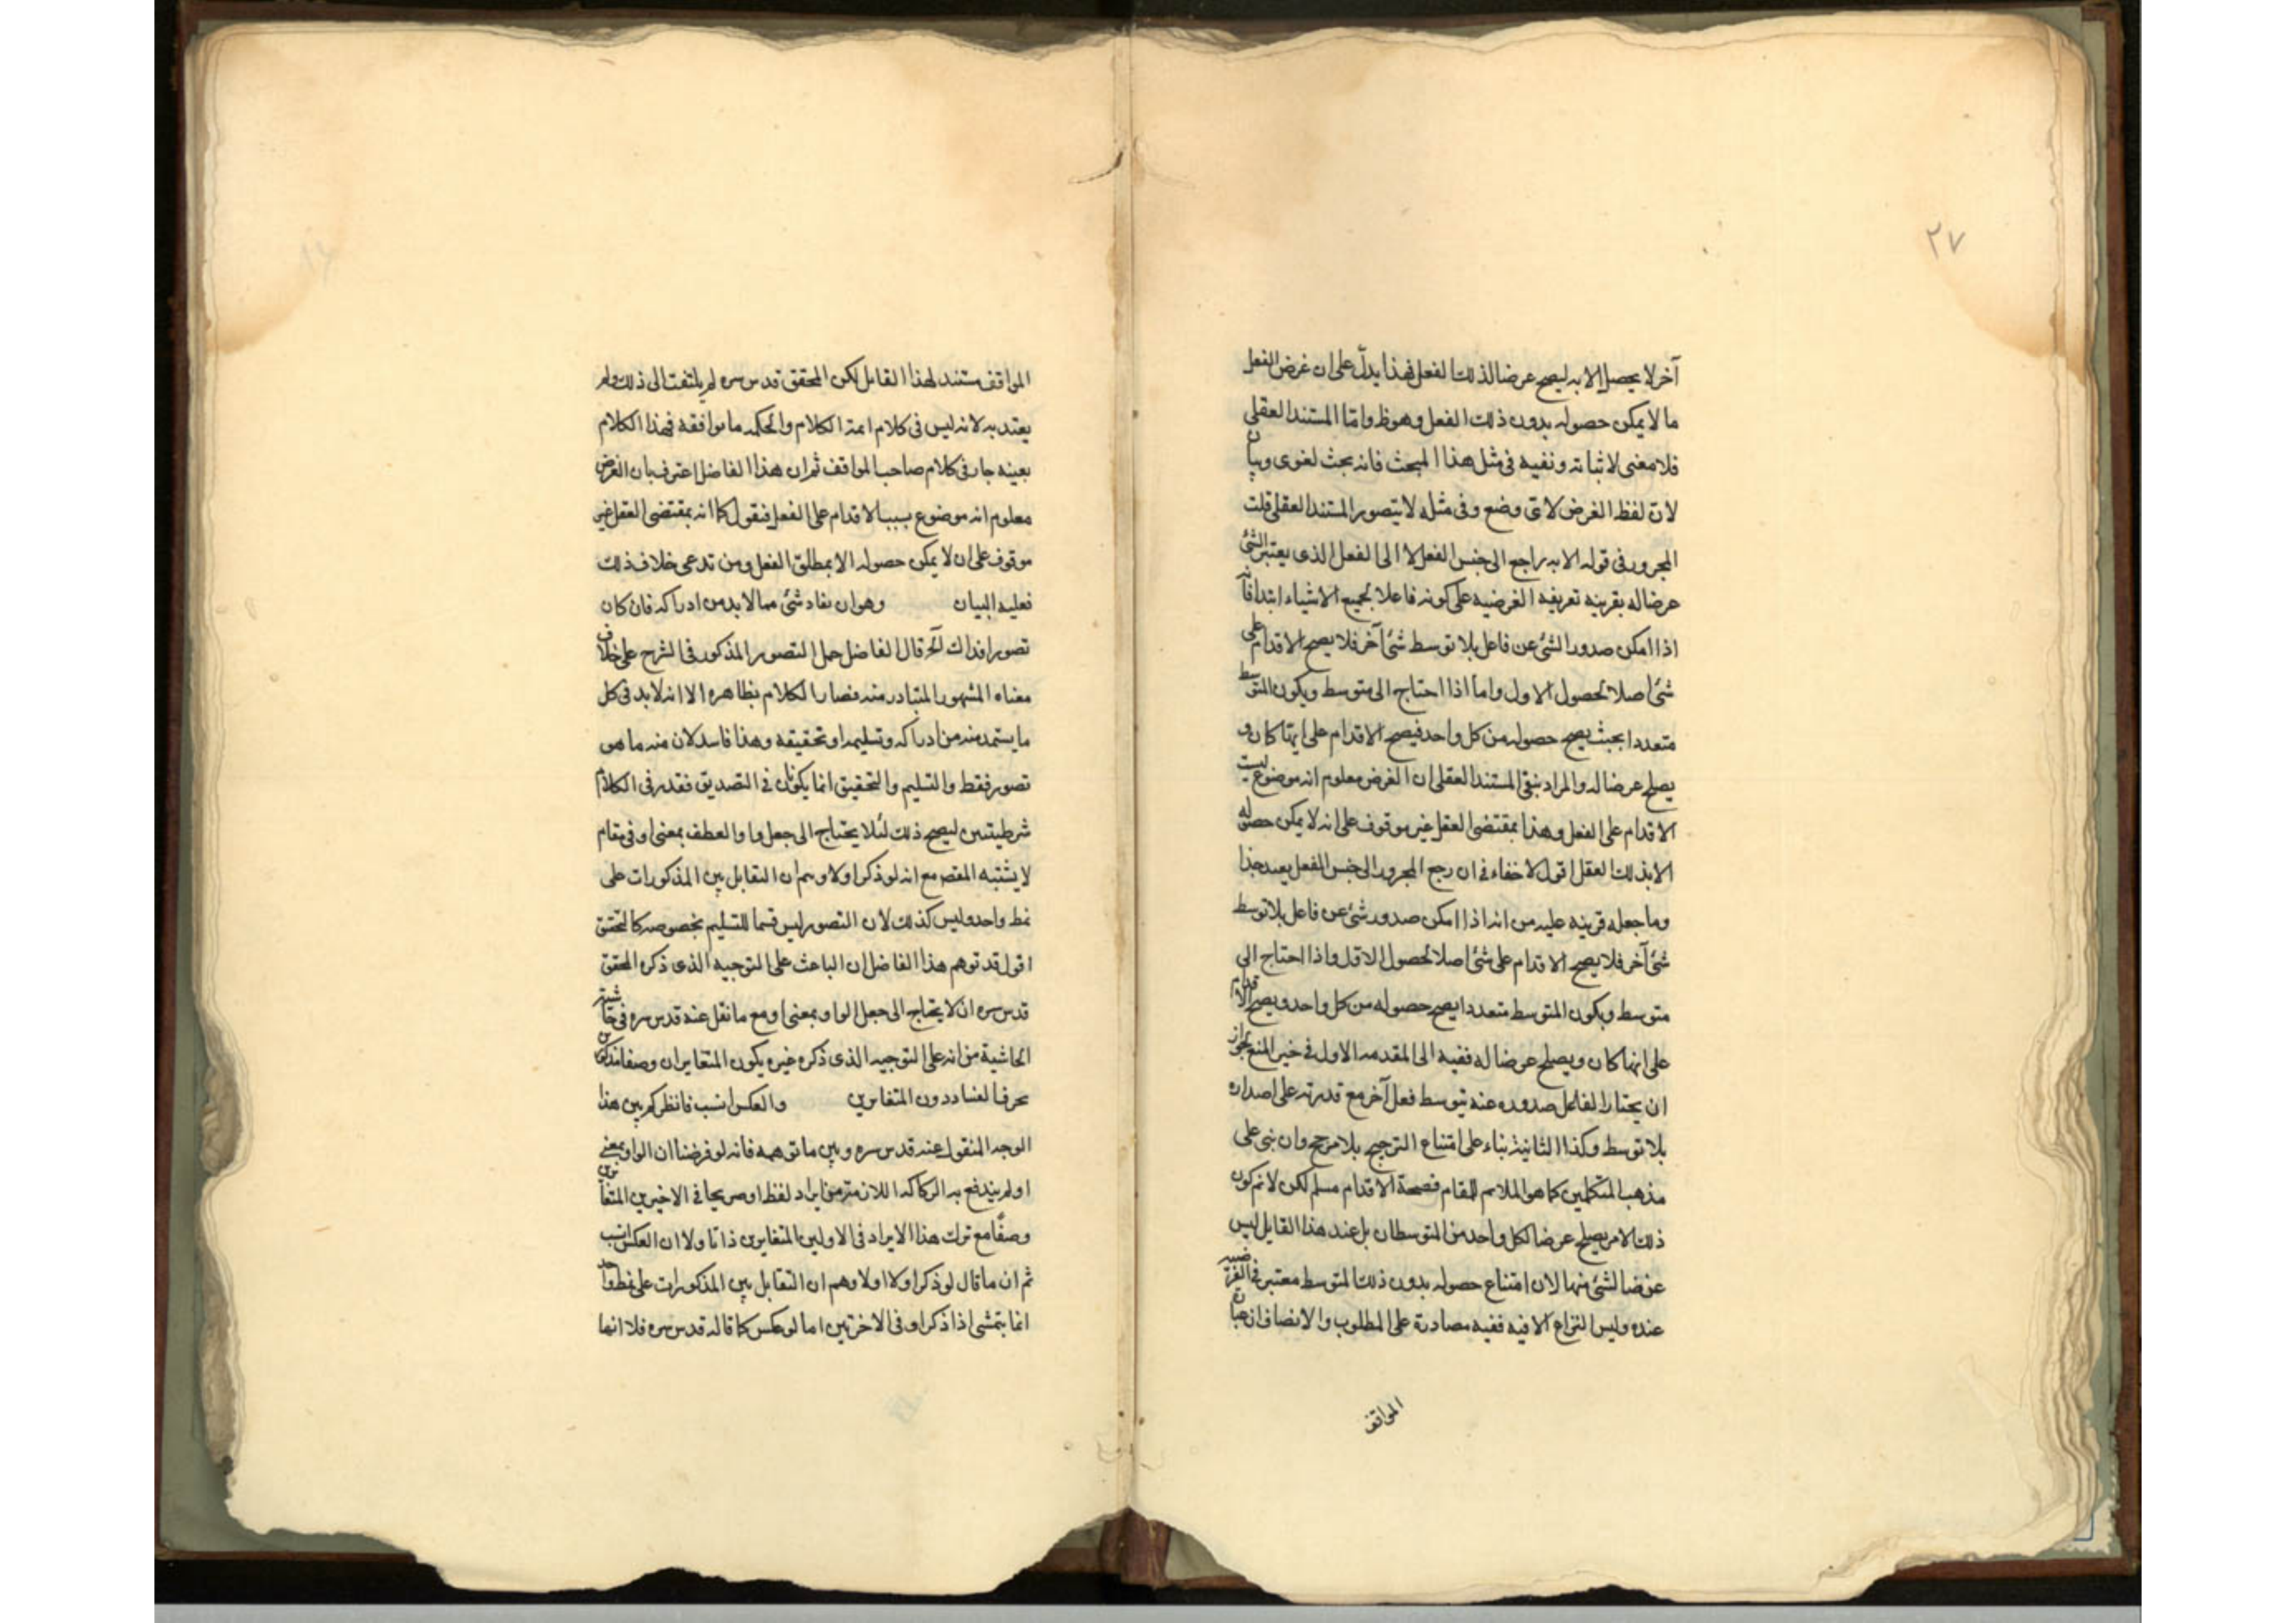 ٢٧
آخر لا يحصل الا به ليصح عرضا لذلك الفعل فهذا يدلّ على ان غرض الفعل
ما لا يمكن حصوله بدون ذلك الفعل وهو ظ وامّا المستند العقلى
فلا معنى لاثباته ونفيه فى مثل هذا المبحث فانه بحث لغوى وبيان
لانّ لفظ الغرض لاىّ وضع وفى مثله لا يتصور المستند العقلى قلت
المجرور فى قوله الا به راجع الى جنس الفعل لا الى الفعل الذى يعتبر الشئ
عرضا له بقرينه تعريفه الغرضيه على كونه فاعلا لجميع الاشياء ابتدا فانّه
اذا امكن صدور الشئ عن فاعل بلا توسط شئ آخر فلا يصح الاقدام على
شئ اصلا لحصول الاول واما اذا احتاج الى متوسط ويكون المتوسط
متعددا بحيث يصح حصوله من كل واحد فيصح الاقدام على ايها كان و
يصلح عرضا له والمراد بنفى المستند العقلى ان الغرض معلوم انه موضوع ليست
الاقدام على الفعل وهذا بمقتضى العقل غير موقوف على انه لا يمكن حصوله
الا بذلك العقل اقول لا خفاء فى ان رجع المجرور الى جنس الفعل بعيد جدا
وما جعله قرينه عليه من انه اذا امكن صدور شئ عن فاعل بلا توسط
شئ آخر فلا يصح الاقدام على شئ اصلا لحصول الاول واذا احتاج الى
متوسط ويكون المتوسط متعددا يصح حصوله من كل واحد ويصح الاقدام
على ايها كان ويصلح عرضا له ففيه الى المقدمه الاول فى خير المنع لجواز
ان يختار الفاعل صدوره عنه بتوسط فعل آخر مع قدرته على اصداره
بلا توسط وكذا الثانية بناء على امتناع الترجيح بلا مرجح وان بنى على
مذهب المتكلمين كما هو الملايم للمقام فصحة الاقدام مسلم لكن لا نم كون
ذلك الامر يصلح عرضا لكل واحد من المتوسطان بل عند هذا القايل ليس
عرضا لشئ منها لان امتناع حصوله بدون ذلك المتوسط معتبر فى الغرضيه
عنده وليس النزاع الا فيه ففيه مصادرة على المطلوب والانصاف ان عبارة
المواقف
المواقف مستند لهذا القابل لكن المحقق قدس سره لم يلتفت الى ذلك ولم
يعتد به لانه ليس فى كلام ائمة الكلام والحكمه ما يوافقه فهذا الكلام
بعينه جار فى كلام صاحب المواقف ثم ان هذا الفاضل اعترف بان الغرض
معلوم انه موضوع بسبب الاقدام على الفعل فنقول كما انه بمقتضى العقل غير
موقوف على ان لا يمكن حصوله الا بمطلق الفعل ومن تدعى خلاف ذلك
فعليه البيان وهو ان يفاد شئ مما لا بد من ادراكه فان كان
تصورا فذاك الخ قال الفاضل حمل التصور المذكور فى الشرح على خلاف
معناه المشهور المتبادر منه فصار الكلام بظاهره الا انه لا بد فى كل
ما يستمد منه من ادراكه وتسليمه او تحقيقه وهذا فاسد لان منه ما هو
تصور فقط والتسليم والتحقيق انما يكونان فى التصديق فقدر فى الكلام
شرطيتين ليصح ذلك لئلا يحتاج الى جعل واو العطف بمعنى او فى مقام
لا يشتبه المقصر مع انه لو ذكر اولا وهم ان التقابل بين المذكورات على
نمط واحد وليس كذلك لان التصور ليس قسما للتسليم بخصوصه كالتحقق
اقول قد توهم هذا الفاضل ان الباعث على التوجيه الذى ذكره المحقق
قدس سره ان لا يحتاج الى جعل الواو بمعنى او مع ما نقل عنه قدس سره فى حاشية
الحاشية من انه على التوجيه الذى ذكره غيره يكون المتغايران وصفا مذكورين
بحرف العناد دون المتغايرين والعكس انسب فانظر كم بين هذا
الوجه المنقول عنه قدس سره وبين ما توهمه فانه لو فرضنا ان الواو بمعنى
او لم يندفع به الركاكه اللازمة من ايراد لفظ او صريحا فى الاخيرين المتغايرين
وصفًا مع ترك هذا الايراد فى الاولين المتغايرين ذاتا ولا ان العكس انسب
ثم ان ما قال لو ذكر اولا اولا وهم ان التقابل بين المذكورات على نمط واحد
انما يتمشى اذا ذكر او فى الاخرتين اما لو عكس كما قاله قدس سره فلا انما